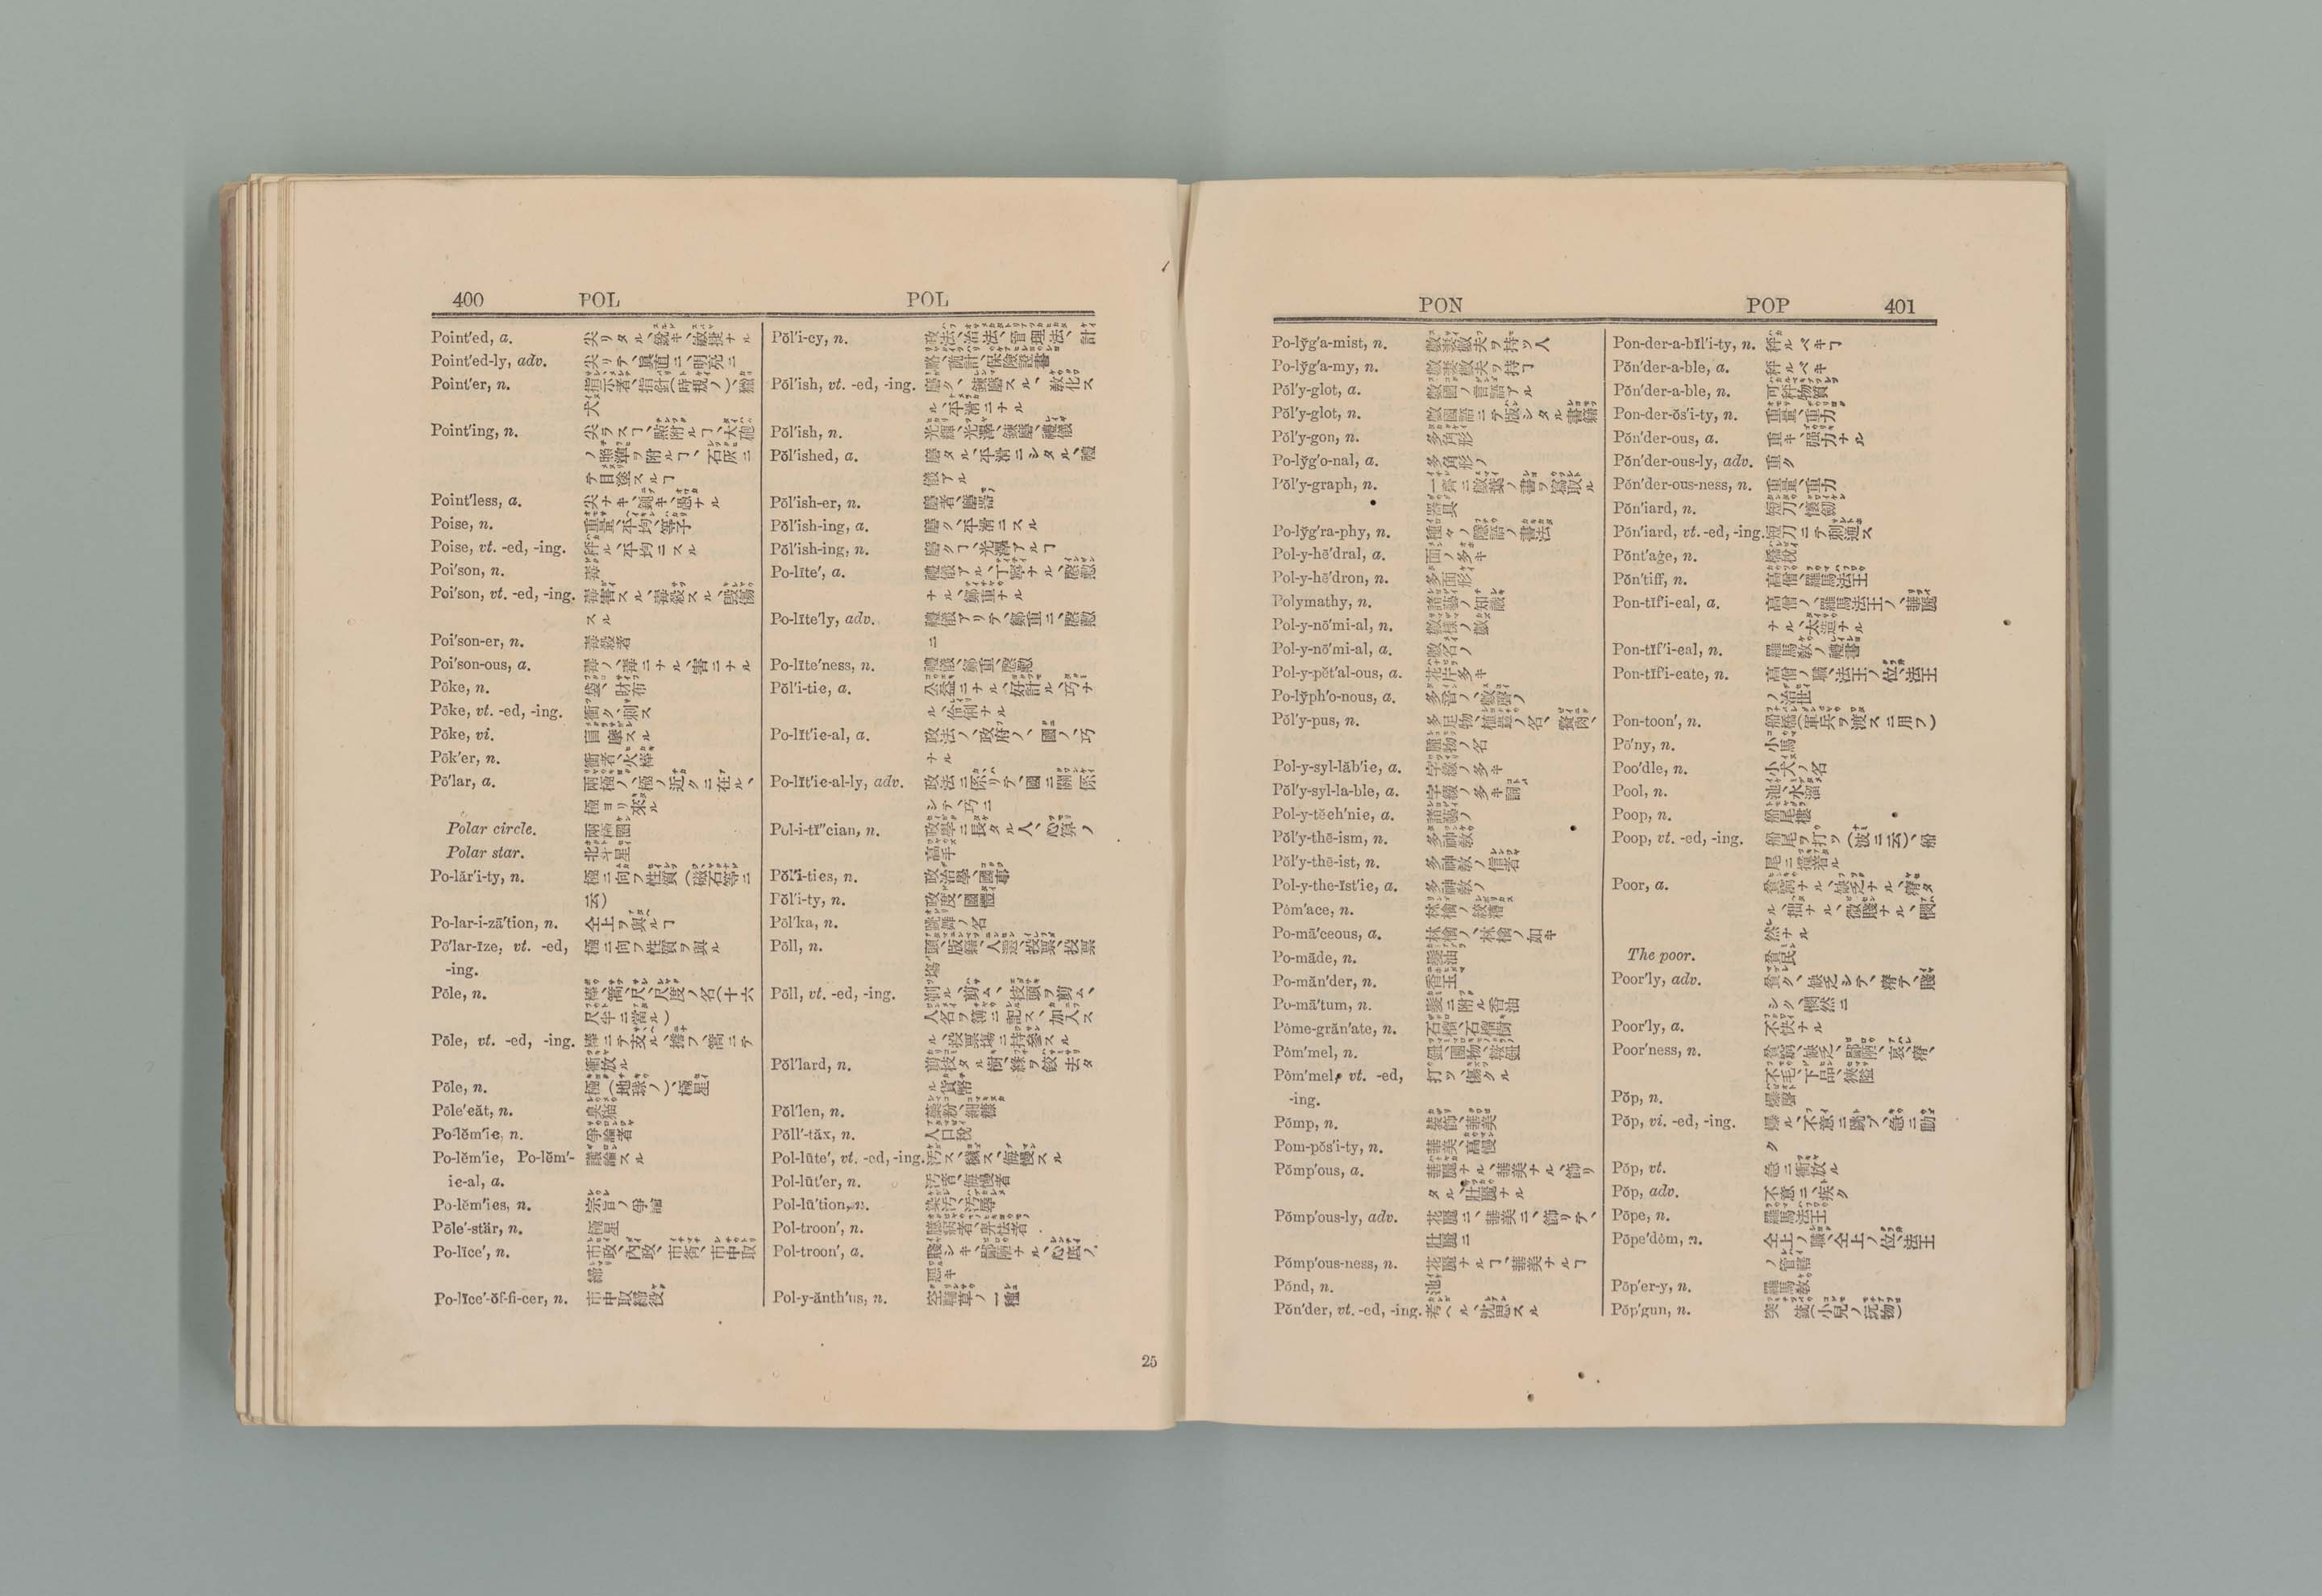 400 POL POL
Point′ed, a. 尖リタル、銳キ、敏捷ナル
Point′ed-ly, adv. 尖リテ、眞直ニ、明亮ニ
Point′er, n. 指示者、指針(時規ノ)、獵
犬
Point′ing, n. 尖ラスヿ、點附ルヿ、大砲
ノ照準ヲ附ルヿ、石灰ニ
テ目塗スルヿ
Point′less, a. 尖ナキ、鈍キ、愚ナル
Poise, n. 重量、平均、等子
Poise, vt. -ed, -ing. 秤ル、平均ニスル
Poi′son, n. 毒
Poi′son, vt. -ed, -ing. 毒害スル、毒殺スル、毀傷
スル
Poi′son-er, n. 毒殺者
Poi′son-ous, a. 毒ノ、毒ニナル、害ニナル
Pōke, n. 袋、財布
Pōke, vt. -ed, -ing. 衝ク、刺ス
Pōke, vi. 盲摩スル
Pōk′er, n. 衝者、火棒
Pō′lar, a. 兩極ノ、極ノ近クニ在ル、
極ヨリ來ル
Polar circle. 兩極圈
Polar star. 北斗星
Po-lăr′i-ty, n. 極ニ向フ性質(磁石等ニ
云)
Po-lar-i-zā′tion, n. 仝上ヲ與ルヿ
Pō′lar-īze, vt. -ed, 極ニ向フ性質ヲ與ル
-ing.
Pōle, n. 棒、篙、尺、尺度ノ名(十六
尺半ニ當ル)
Pōle, vt. -ed, -ing. 棒ニテ支ル、擔フ、篙ニテ
衝放ル
Pōle, n. 極(地球ノ)、極星
Pōle′eăt, n. 臭猫
Po-lĕm′ie, n. 爭論者
Po-lĕm′ie, Po-lĕm′- 議論スル
ie-al, a.
Po-lĕm′ies, n. 宗旨ノ爭論
Pōle′-stär, n. 極星
Po-līce′, n. 市政、內政、市街、市中取
締
Po-līce′-ŏf-fi-cer, n. 市中取締役
Pŏl′i-cy, n. 政法、治法、管理法、計
略、詭計、保險證書
Pŏl′ish, vt. -ed, -ing. 磨ク、鍊磨スル、敎化ス
ル、平滑ニナル
Pŏl′ish, n. 光輝、光澤、鍊磨、禮儀
Pŏl′ished, a. 磨タル、平滑ニシタル、禮
儀アル
Pŏl′ish-er, n. 磨者、磨器
Pŏl′ish-ing, a. 磨ク、平滑ニスル
Pŏl′ish-ing, n. 磨クヿ、光澤アルヿ
Po-līte′, a. 禮儀アル、丁寧ナル、慇懃
ナル、鄭重ナル
Po-līte′ly, adv. 禮儀アリテ、鄭重ニ、慇懃
ニ
Po-līte′ness, n. 禮儀、鄭重、慇懃
Pŏl′i-tie, a. 公益ニナル、好計ル、巧ナ
ル、伶俐ナル
Po-lĭt′ie-al, a. 政法ノ、政府ノ、國ノ、巧
ナル
Po-lĭt′ie-al-ly, adv. 政法ニ係リテ、國ニ關係
シテ、巧ニ
Pol-i-tĭ″cian, n. 政學ニ長タル人、心算ノ
高手
Pŏl′i-ties, n. 政治學、國事
Pŏl′i-ty, n. 政度、國體
Pŏl′ka, n. 跳舞ノ名
Pōll, n. 頭、版籍、人選、投票、投票
塲
Pōll, vt. -ed, -ing. 刈ル、剪ム、技頭ヲ剪ム、
人名ヲ簿ニ記ス、加入ス
ル、投票塲ニ持參スル
Pŏl′lard, n. 剪技タル樹、緣ヲ鉸去タ
ル貨幣
Pŏl′len, n. 藥粉、細糠
Pōll′-tăx, n. 人口稅
Pol-lūte′, vt. -ed, -ing. 汚ス、穢ス、侮慢スル
Pol-lūt′er, n. 汚者、侮慢者
Pol-lū′tion, n. 染汚、汚辱
Pol-troon′, n. 臆病者、卑怯者
Pol-troon′, a. 賤シキ、鄙陋ナル、心底ノ
惡キ
Pol-y-ănth′us, n. 草ノ一種
25
PON POP 401
Po-lўg′a-mist, n. 數妻數夫ヲ持ツ人
Po-lўg′a-my, n. 數妻數夫ヲ持ヿ
Pŏl′y-glot, a. 數國ノ言語アル
Pŏl′y-glot, n. 數國語ニテ版シタル書籍
Pŏl′y-gon, n. 多角形
Po-lўg′o-nal, a. 多角形ノ
Pŏl′y-graph, n. 一齊ニ數葉ノ書ヲ寫取ル
器具
Po-lўg′ra-phy, n. 種々ノ隱語ノ書法
Pol-y-hē′dral, a. 面ノ多キ
Pol-y-hē′dron, n. 多面形
Polymathy, n. 諸藝ノ知識
Pol-y-nō′mi-al, n. 數樣ノ數
Pol-y-nō′mi-al, a. 數名ノ
Pol-y-pĕt′al-ous, a. 花片多キ
Po-lўph′o-nous, a. 多音ノ、數聲ノ
Pŏl′y-pus, n. 多足物、植蟲ノ名、瘜肉、
腫物ノ名
Pol-y-syl-lăb′ie, a. 字綴ノ多キ
Pŏl′y-syl-la-ble, a. 字綴ノ多キ詞
Pol-y-tĕch′nie, a. 諸藝ノ
Pŏl′y-thē-ism, n. 多神敎
Pŏl′y-thē-ist, n. 多神敎ノ信者
Pol-y-the-ĭst′ie, a. 多神敎ノ
Pŏm′ace, n. 林檎ノ絞糟
Po-mā′ceous, a. 林檎ノ、林檎ノ如キ
Po-māde, n. 髮油
Po-măn′der, n. 香玉
Po-mā′tum, n. 髮ニ附ル香油
Pome-grăn′ate, n. 石榴、石榴樹
Pŏm′mel, n. 鈕、團物、鞍鈕
Pŏm′mel, vt. -ed, 打ツ、傷クル
-ing.
Pŏmp, n. 裝飾、華美
Pom-pŏs′i-ty, n. 華美、高慢
Pŏmp′ous, a. 華麗ナル、華美ナル、飾リ
タル、壯麗ナル
Pŏmp′ous-ly, adv. 花麗ニ、華美ニ、飾リテ、
壯麗ニ
Pŏmp′ous-ness, n. 花麗ナルヿ、華美ナルヿ
Pŏnd, n. 池
Pŏn′der, vt. -ed, -ing. 考ヘル、沈思スル
Pon-der-a-bĭl′i-ty, n. 秤ルベキヿ
Pŏn′der-a-ble, a. 秤ルベキ
Pŏn′der-a-ble, n. 可秤物質
Pon-der-ŏs′i-ty, n. 重量、重力
Pŏn′der-ous, a. 重キ、强力ナル
Pŏn′der-ous-ly, adv. 重ク
Pŏn′der-ous-ness, n. 重量、重力
Pŏn′iard, n. 短刀、懷劒
Pŏn′iard, vt. -ed, -ing. 短刀ニテ刺通ス
Pŏnt′aġe, n. 橋稅
Pŏn′tiff, n. 高僧、羅馬法王
Pon-tĭf′i-eal, a. 高僧ノ、羅馬法王ノ、華麗
ナル、太造ナル
Pon-tĭf′i-eal, n. 羅馬敎ノ禮書
Pon-tĭf′i-eate, n. 高僧ノ職、法王ノ位、法王
ノ治世
Pon-toon′, n. 船橋(軍兵ヲ渡スニ用フ)
Pō′ny, n. 小馬
Poo′dle, n. 小犬ノ名
Pool, n. 池、水溜
Poop, n. 船尾樓
Poop, vt. -ed, -ing. 船尾ヲ打ツ(波ニ云)、船
尾ニ撞着ル
Poor, a. 貧窮ナル、缺乏ナル、瘠タ
ル、拙ナル、微賤ナル、憫
然ナル
The poor. 貧民
Poor′ly, adv. 貧ク、缺乏シテ、瘠テ、賤
シク、憫然ニ
Poor′ly, a. 不快ナル
Poor′ness, n. 貧窮、缺乏、鄙陋、哀、瘠、
不毛、下品、狹隘
Pŏp, n. 爆聲
Pŏp, vi. -ed, -ing. 爆ル、不意ニ跳ブ、急ニ動
ク
Pŏp, vt. 急ニ衝放ル
Pŏp, adv. 不意ニ、疾ク
Pōpe, n. 羅馬法王
Pōpe′dŏm, n. 仝上ノ職、仝上ノ位、法王
ノ管轄
Pōp′er-y, n. 羅馬敎
Pŏp′gun, n. 突銃(小兒ノ玩物)